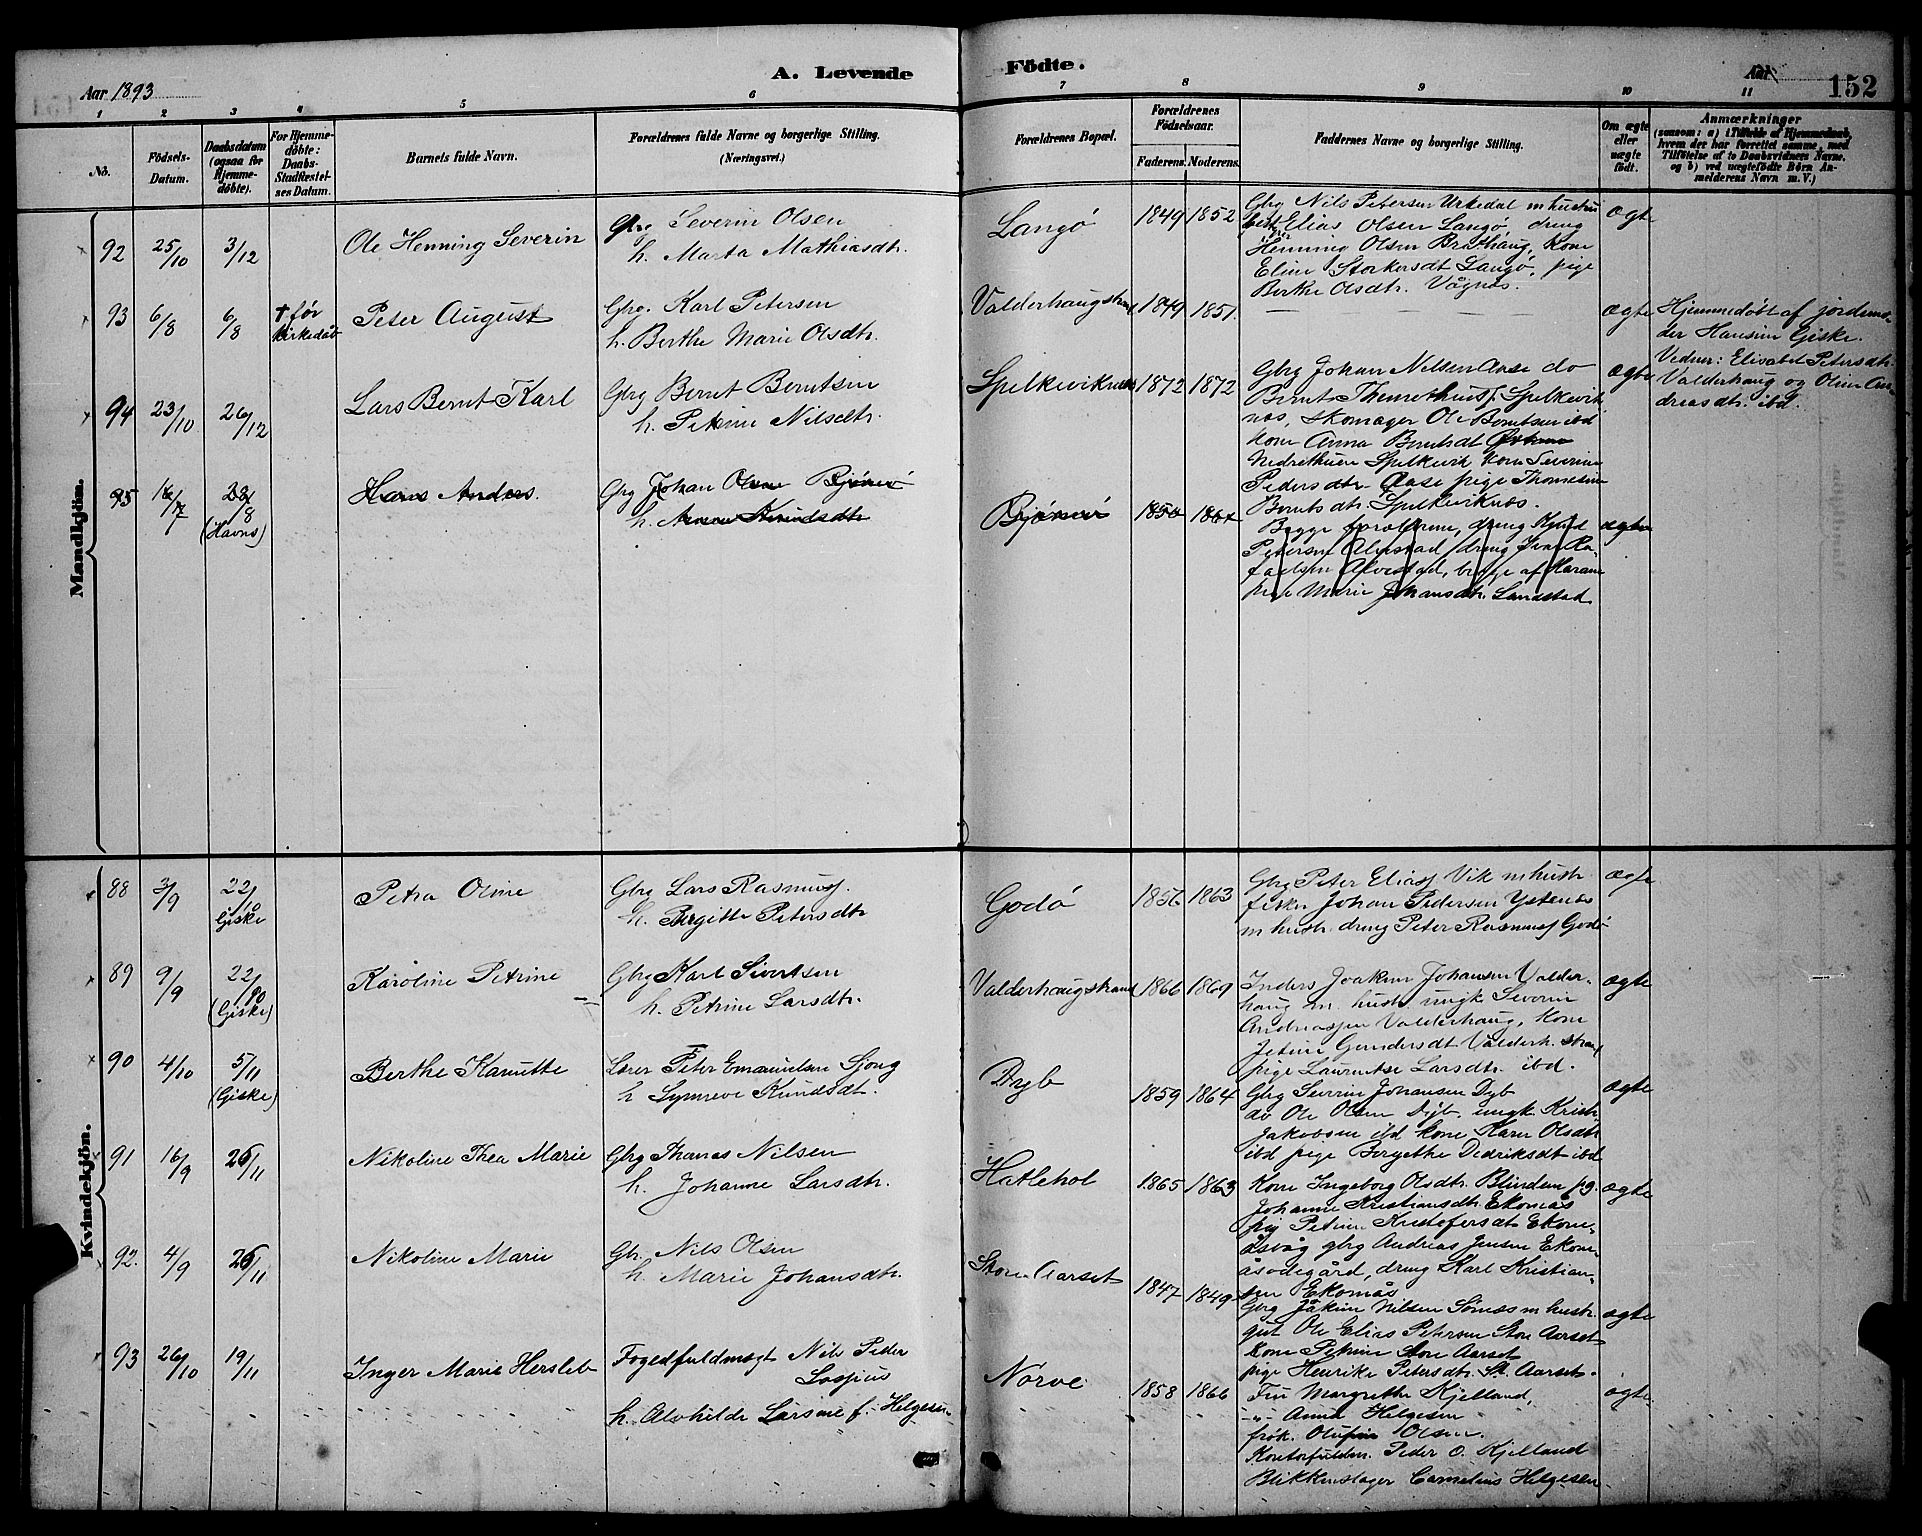 A. Levende Födte.
Aar 1893
Aar
152
1 2 3 4 5 6 7 8 9 10 11
No.
Födsels-
Datum.
Daabsdatum
(ogsaa for
Hjemme-
döbte).
For Hjemme-
döbte:
Daabs-
Stadfæstel-
ses Datum.
Barnets fulde Navn.
Forældrenes fulde Navne og borgerlige Stilling.
(Næringsvei.)
Forældrenes Bopæl.
Forældrenes
Födselsaar.
Faderens. Moderens.
Faddernes Navne og borgerlige Stilling.
Om ægte
eller
uægte
födt.
Anmærkninger
(saasom: a) i Tilfælde af Hjemmedaab,
hvem der har forrettet samme, med
Tilföielse af to Daabsvidners Navne.
og b) ved uægtefödte Börn An-
melderens Navn m. V.)
Mandkjön.
92 25/10 3/12 Ole Henning Severin
Gbrg Severin Olsen
h. Marta Mathiasdtr.
Langö 1849 1852
Gbrg Nils Petersen Urkedal m hustru
Elias Olsen Langö, dreng
Henning Olsen Brathaug, Kone
Eline Storkersdt Langö, pige
Berthe Olsdtr. Vågnes.
ægte
93 6/8 6/8 † før
kirkedåb
Peter August
Gbrg. Karl Petersen
h. Berthe Marie Olsdtr.
Valderhaugstrand 1849 1851.
ægte
Hjemmedøbt af jordemo-
der Hansine Giske.
Vidner: Elisabet Petersdtr.
Valderhaug og Oline An-
dreasdtr. ibd.
94 23/10 26/12 Lars Bernt Karl
Gbrg Bernt Berntsen
h. Petrine Nilsdtr.
Spelkeviknes 1872 1872
Gbrg Johan Nilsen Aase do
Bernt Spelkevik
nes, Skomager Ole Berntsen ibd
kone Anna Berntsdt
Nedrethuen Spelkevik kone Severine
Pedersdtr. Aase pige Thomasine
Berntsdtr. Spelkeviknes.
ægte
95 28/8
(Havns)
Hans Anders.
Gbrg Johan Olsen Bjørnö
h. Knudsdtr
Bjørnö 1850 1867
Begge forældrene, dreng Knud
Petersen Alvestad, dreng Iver Ra-
faelsen Alvestad, begge af Haram
pige Marie Johansdtr. Landstad
ægte
Kvindekjön.
88 3/9 22/10
Giske
Petra Oline
Gbrg Lars Rasmuss.
h. Birgitte Petersdtr
Godö 1856 1863
Gbrg Peter Eliass Vik m hustr
fisker Johan Pedersen Ystenæs
m hustr. dreng Peter Rasmuss Godö
ægte
89 9/9 22/10
(Giske)
Karoline Petrine
Gbrg Karl Sivertsen
h. Petrine Larsdtr.
Valderhaugstrand 1866 1869
Inders Joakim Johansen Valder-
haug m. hustr ungk Severin
Andreassen Valderhaug, kone
Jetine Gundersdt Valderh. strand
pige Laurentse Larsdtr. ibd.
ægte
90 4/10 5/11
(Giske)
Berthe Kanutte
Lærer Peter Emanuelsen Sjong
h Synneve Knudsdt.
Dyb 1859 1864
Gbrg Severin Johansen Dyb
do Ole Olsen Dyb. ungk Kristr
Jakobsen ibd kone Karen Olsdtr
ibd pige Bergethe Dedriksdt ibd
ægte
91 16/9 26/11 Nikoline Thea Marie
Gbrg Thomas Nilsen
h. Johanne Larsdtr.
Hatlehol 1865 1863
Kone Ingeborg Olsdtr. Blindem pg.
Johanne Kristiansdtr. Ekornæs
pig Petrine Kristofersdt Ekorn-
åsvåg gbrg Andreas Jensen Ekorn-
åsødegård, dreng Karl Kristian-
sen Ekornås
ægte
92. 4/9 26/11 Nikoline Marie
Gbr. Nils Olsen
h. Marie Johansdtr.
Store Aarset 1847 1849
Gbrg Jakim Nilsen Sørnæs m hustr.
gut Ole Elias Petersen Store Aarset
Kone Petrine Store Aarset
pige Henrike Petersdtr. St. Aarset.
ægte
93 26/10 19/11 Inger Marie Hersleb
Fogedfuldmægt Nils Peder
Lossius
h. Alvhilde Larsine f. Helgesen.
Nörve 1858 1866
Fru Margrethe Kjelland,
-"- Anna Helgesen
frøk. Olufine Olsen.
Kontorfuldm. Peder O. Kjelland
Blikkenslager Cornelius Helgesen
ægte